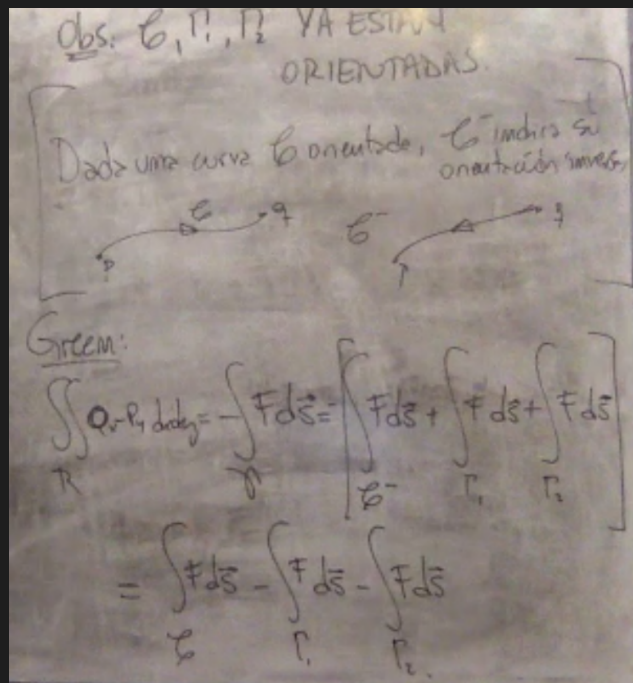 Obs: C, Γ₁, Γ₂ YA ESTAN
ORIENTADAS.
Dada una curva C orientada, C⁻ indica su
orientación inversa
C q C⁻ q
p p
Green:
∬_R Qₓ-P_y dxdy = -∫_γ F ds⃗ = -[∫_C⁻ F ds⃗ + ∫_Γ₁ F ds⃗ + ∫_Γ₂ F ds⃗]
= ∫_C F ds⃗ - ∫_Γ₁ F ds⃗ - ∫_Γ₂ F ds⃗